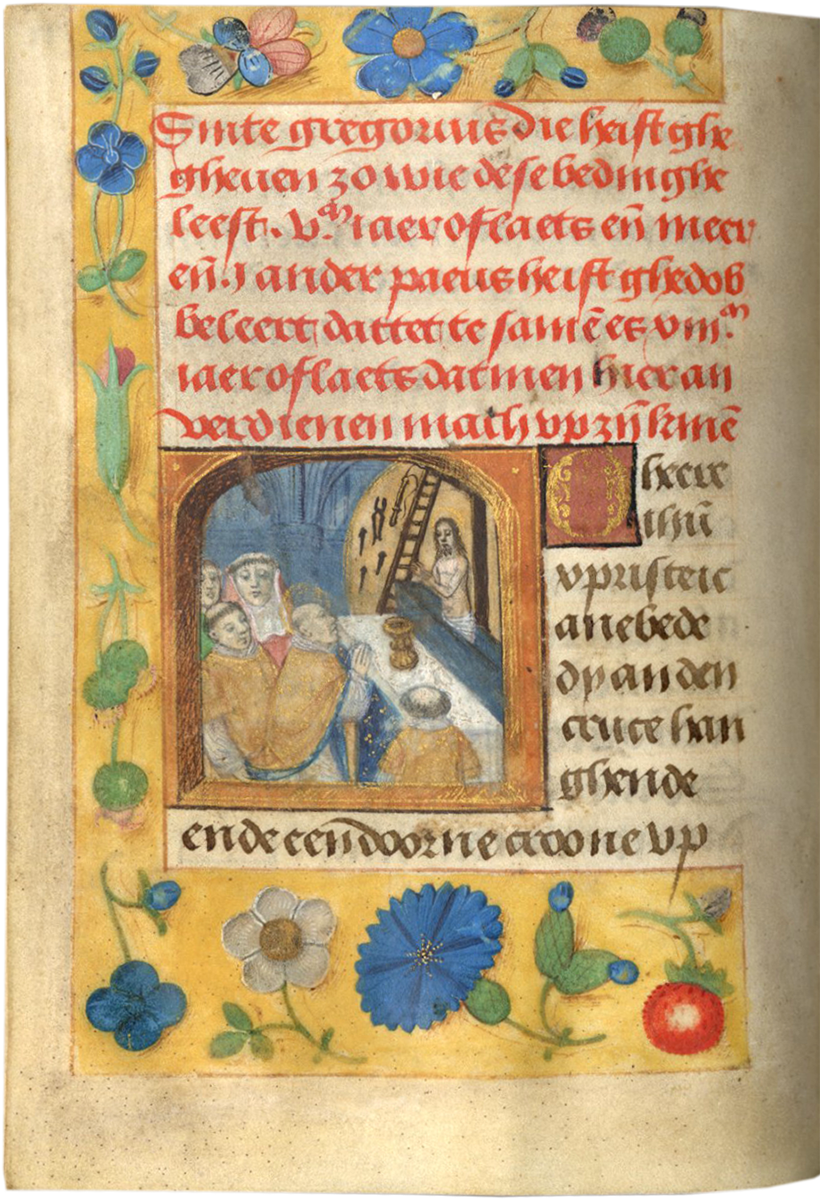 Sinte gregorius die heift ghe
gheuen zo wie dese bedinghe
leest. v.ᵐ iaer oflaets en̄ meer
en̄ .i ander paeus heift ghedob
beleert dattet te samē es viii.ᵐ
iaer oflaets datmen hier an
verdienen mach vp zijn kniē
O heere
ihū
xp̄riste ic
anebede
dy an den
cruce han
ghende
ende een doorne croone vp